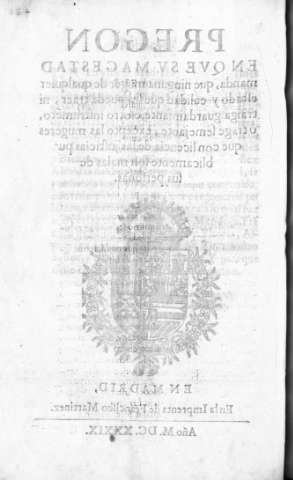 PREGON
EN QVE SV MAGESTAD
manda, que ninguna muger de qualquier
estado y calidad que sea, pueda traer, ni
traiga guardainfante, ò otro instrumẽto,
ò trage semejante, excepto las mugeres
que con licencia de las justicias pu-
blicamente son malas de
sus personas.
EN MADRID,
En la Imprenta de Francisco Martinez.
Año M.DC.XXXIX.